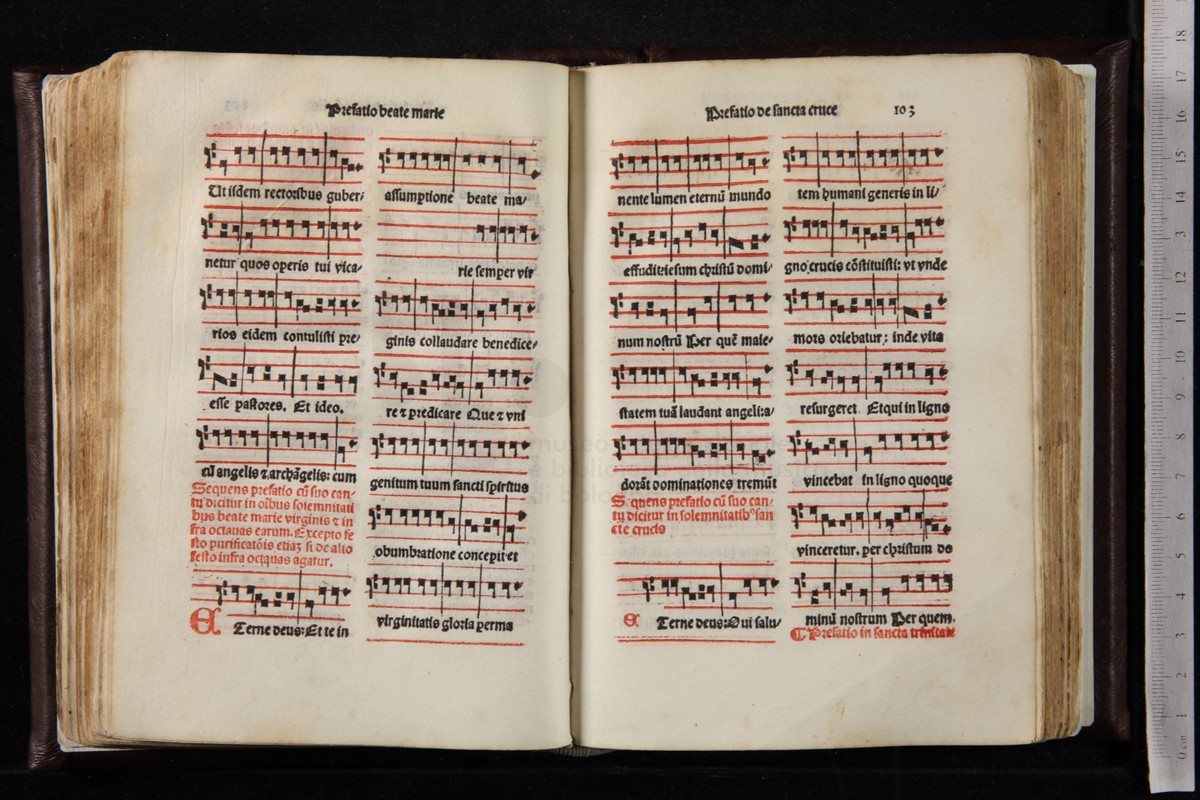 Prefatio beate marie
Ut iisdem rectoribus guber⸗
netur quos operis tui vica⸗
rios eidem contulisti pre⸗
esse pastores. Et ideo.
cū angelis ⁊ archāgelis: cum
Sequens prefatio cū suo can⸗
tu dicitur in oībus solemnitati
bus beate marie virginis ⁊ in
fra octauas earum. Excepto fe
sto purificatōis etiaꝫ si de alio
festo infra octauas agatur.
E Terne deus: Et te in
assumptione beate ma⸗
rie semper vir
ginis collaudare benedice⸗
re ⁊ predicare Que ⁊ vni
genitum tuum sancti spiritus
obumbratione concepit et
virginitatis gloria perma
Prefatio de sancta cruce 103
nente lumen eternū mundo
effudit: iesum christū domi⸗
num nostrū Per quē maie⸗
statem tuā laudant angeli: a⸗
dorāt dominationes tremūt
Sequens prefatio cū suo can⸗
tu dicitur in solemnitatibꝰ san
cte crucis
E Terne deus: Qui salu⸗
tem humani generis in li⸗
gno crucis cōstituisti: vt vnde
mors oriebatur: inde vita
resurgeret. Et qui in ligno
vincebat in ligno quoque
vinceretur. per christum do
minū nostrum Per quem.
¶ Prefatio in sancta trinitate
museo
biblioteca
di bologna
0 cm 1 2 3 4 5 6 7 8 9 10 11 12 13 14 15 16 17 18